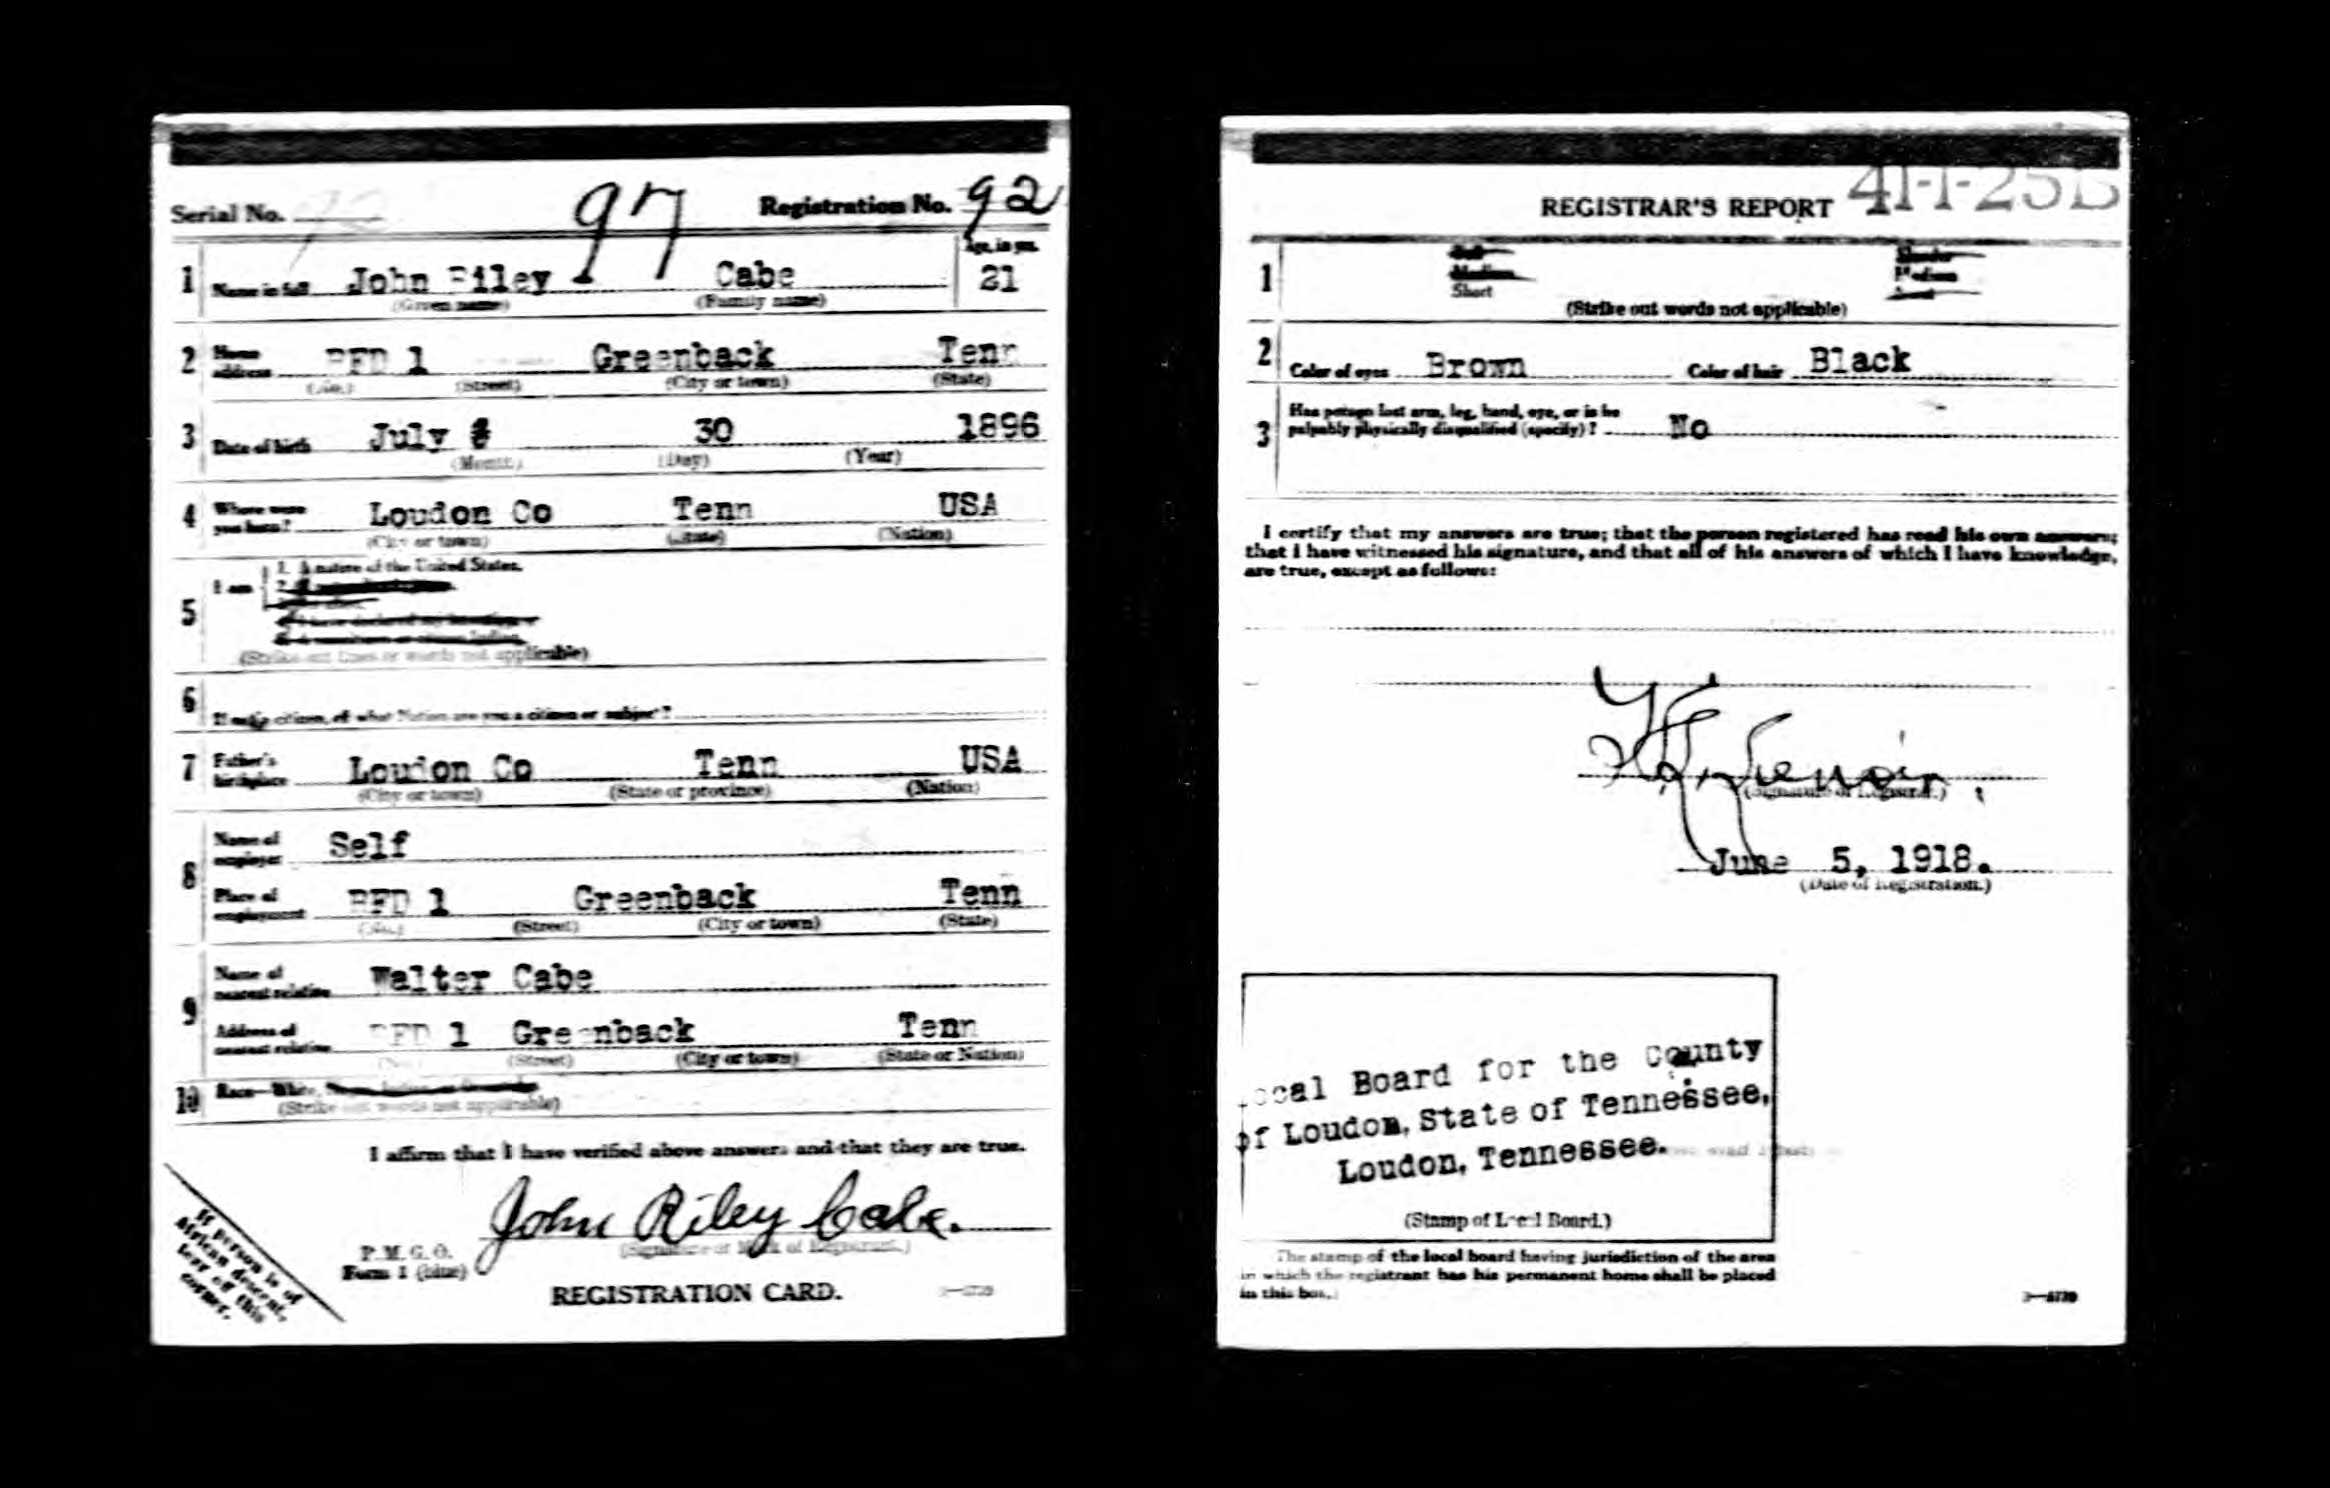 Serial No. 97 Registration No. 92
Age, in yrs.
1 Name in full John Riley Cabe 21
(Given name) (Family name)
2 Home address RFD 1 Greenback Tenn
(No.) (Street) (City or town) (State)
3 Date of birth July 30 1896
(Month) (Day) (Year)
4 Where were you born? Loudon Co Tenn USA
(City or town) (State) (Nation)
5 I am 1. A native of the United States.
(Strike out lines or words not applicable)
6 If not a citizen, of what Nation are you a citizen or subject?
7 Father's birthplace Loudon Co Tenn USA
(City or town) (State or province) (Nation)
8 Name of employer Self
Place of employment RFD 1 Greenback Tenn
(No.) (Street) (City or town) (State)
9 Name of nearest relative Walter Cabe
Address of nearest relative RFD 1 Greenback Tenn
(No.) (Street) (City or town) (State or Nation)
10 Race—White,
(Strike out words not applicable)
I affirm that I have verified above answers and that they are true.
John Riley Cabe.
(Signature or Mark of Registrant.)
P. M. G. O.
Form 1 (blue)
REGISTRATION CARD.
If person is of
African descent,
tear off this
corner.
REGISTRAR'S REPORT
1 Short Medium
(Strike out words not applicable)
2 Color of eyes Brown Color of hair Black
3 Has person lost arm, leg, hand, eye, or is he
palpably physically disqualified (specify)? No
I certify that my answers are true; that the person registered has read his own answers;
that I have witnessed his signature, and that all of his answers of which I have knowledge,
are true, except as follows:
Lenoir.
(Signature of Registrar.)
June 5, 1918.
(Date of Registration.)
Local Board for the County
of Loudon, State of Tennessee,
Loudon, Tennessee.
(Stamp of Local Board.)
The stamp of the local board having jurisdiction of the area
in which the registrant has his permanent home shall be placed
in this box.